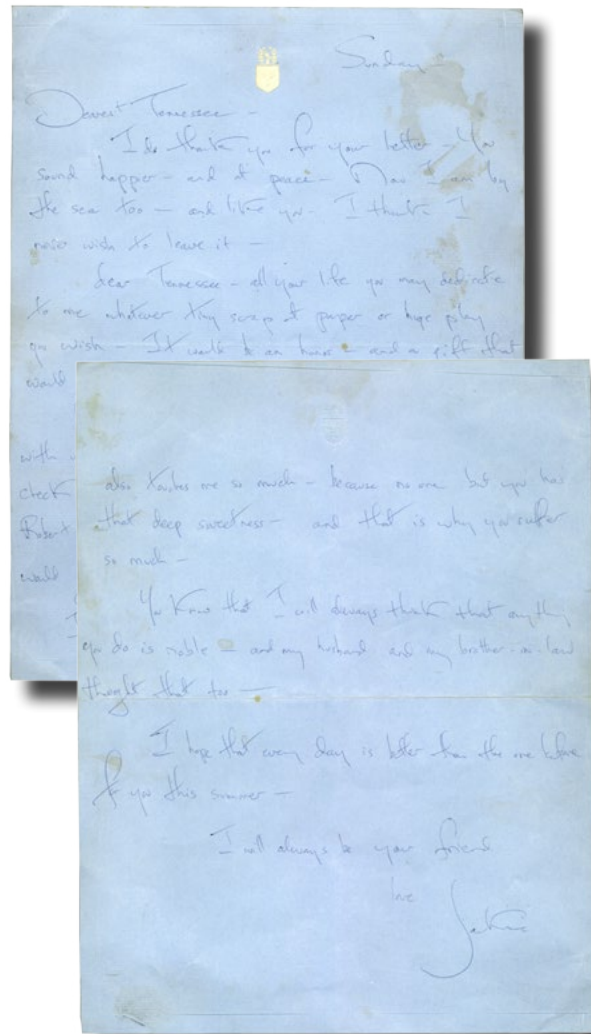 Sunday –
Dearest Tennessee –
I do thank you for your letter – You
sound happier – and at peace – Now I am by
the sea too – and like you – I think I
never wish to leave it –
dear Tennessee – all your life you may dedicate
to me whatever tiny scrap of paper or huge play
you wish – It would be an honor – and a gift that
would
with
check
Robert
would
I
also touches me so much – because no one but you has
that deep sweetness – and that is why you suffer
so much –
You know that I will always think that anything
you do is noble – and my husband and my brother-in-law
thought that too –
I hope that every day is better than the one before
for you this summer –
I will always be your friend
love
Jackie